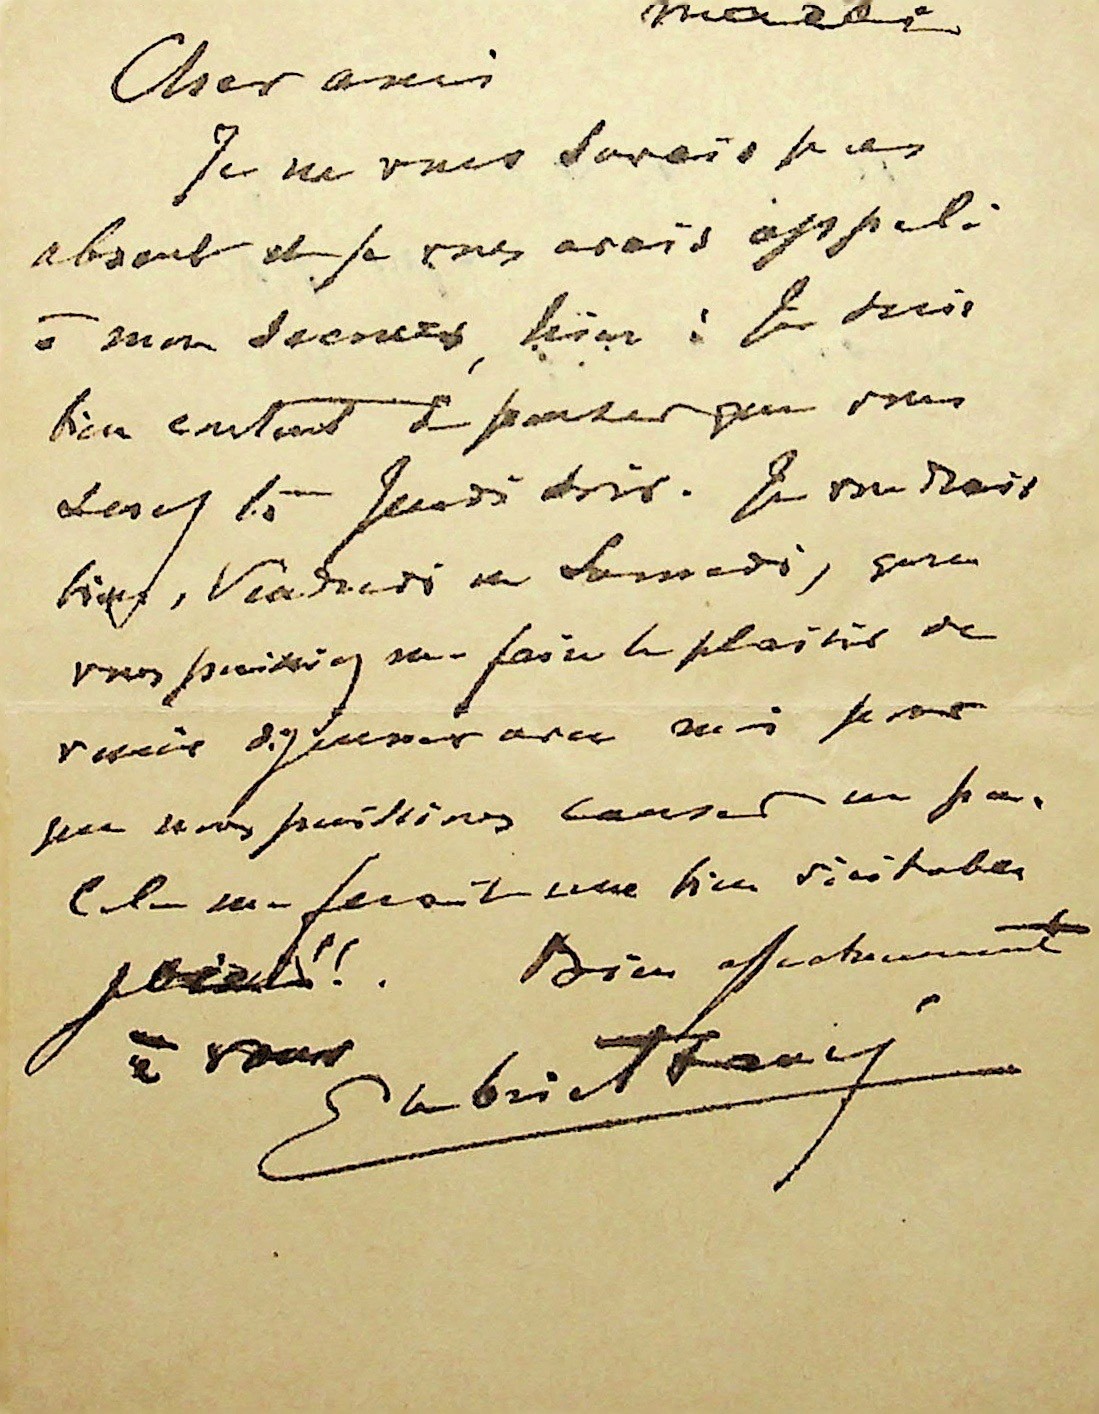 mardi
Cher ami
Je ne vous savais pas
absent et je vous avais appelé
à mon secours, hier : Je suis
bien content de penser que vous
serez là Jeudi soir. Je voudrais
bien, Vendredi ou Samedi, que
vous puissiez me faire le plaisir de
venir déjeuner avec moi pour
que nous puissions causer un peu.
Cela me ferait une bien véritable
joie!! Bien affectueusement
à vous
Gabriel Fauré